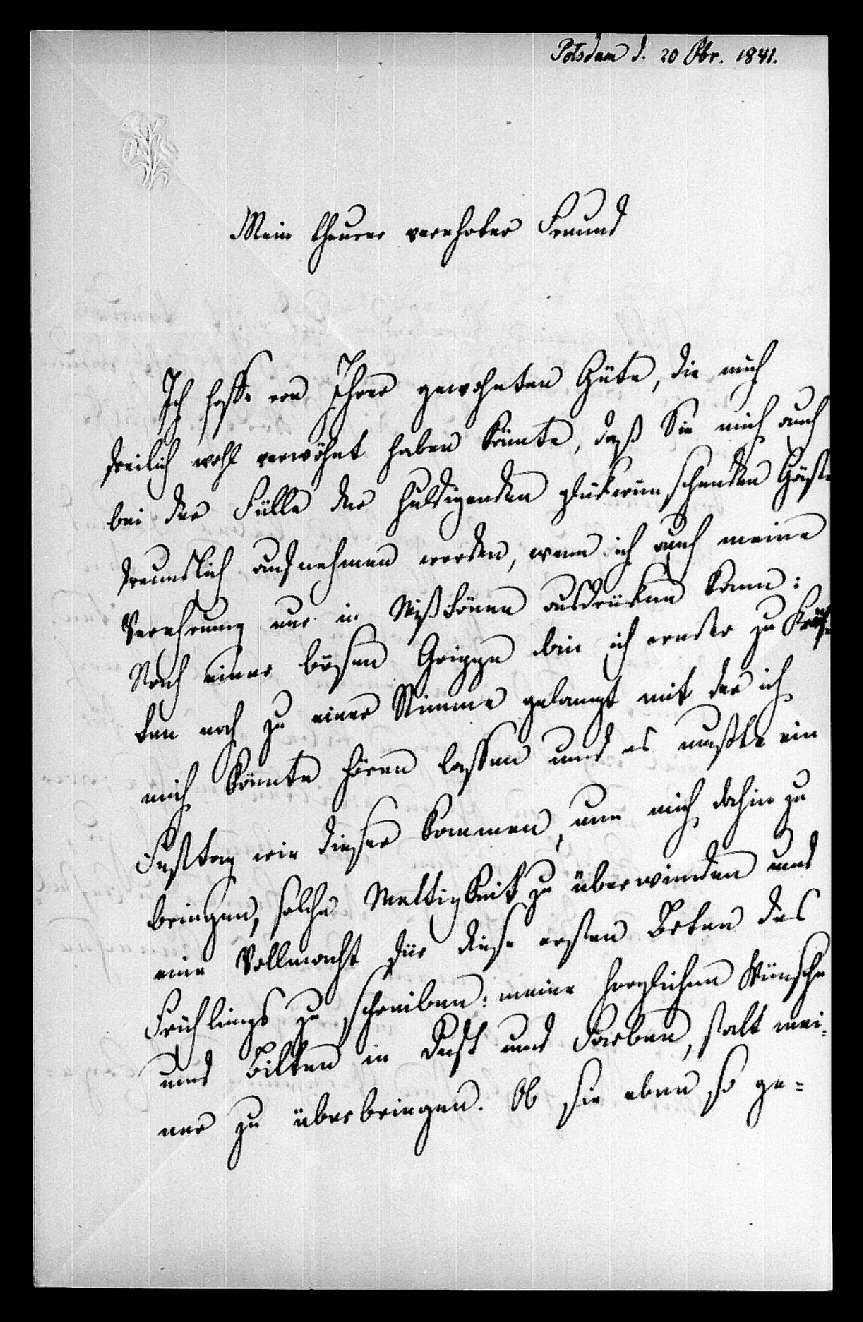 Potsdam d. 20 Obr. 1841.
Mein theurer verehrter Freund
Ich hoffe von Ihrer gewohnten Güte, die mich
freilich wohl verwöhnt haben könnte, daß Sie mich auch
bei der Fülle der huldigenden glükwünschenden Gäste
freundlich aufnehmen werden, wenn ich auch meine
Verehrung nur in Mißtönen ausdrüken kann:
Nach einer bösen Grippe bin ich weder zu Kräf
ten noch zu einer Stimme gelangt mit der ich
mich könnte hören lassen und es mußte ein
Festtag wie dieser kommen, um mich dahin zu
bringen, solche Mattigkeit zu überwinden und
eine Vollmacht für diese ersten Boten des
Frühlings zu schreiben: meine herzlichen Wünsche
und Bitten in Duft und Farben, statt mei-
ner zu überbringen. Ob sie eben so ge-